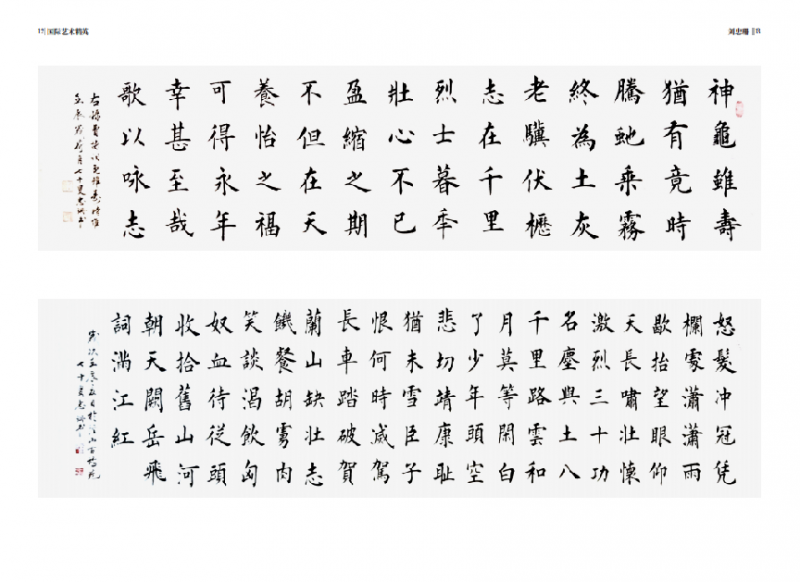 国际艺术
神龜雖壽
猶有竟時
騰虵乘霧
終為土灰
老驥伏櫪
志在千里
烈士暮秊
壯心不已
盈縮之期
不但在天
養怡之福
可得永年
幸甚至哉
歌以咏志
怒髮冲冠凭
欄處瀟瀟雨
歇抬望眼仰
天長嘯壯懷
激烈三十功
名塵與土八
千里路雲和
月莫等閑白
了少年頭空
悲切靖康耻
猶未雪臣子
恨何時滅駕
長車踏破賀
蘭山缺壯志
饑餐胡虜肉
笑談渴飲匈
奴血待從頭
收拾舊山河
朝天闕岳飛
詞滿江紅